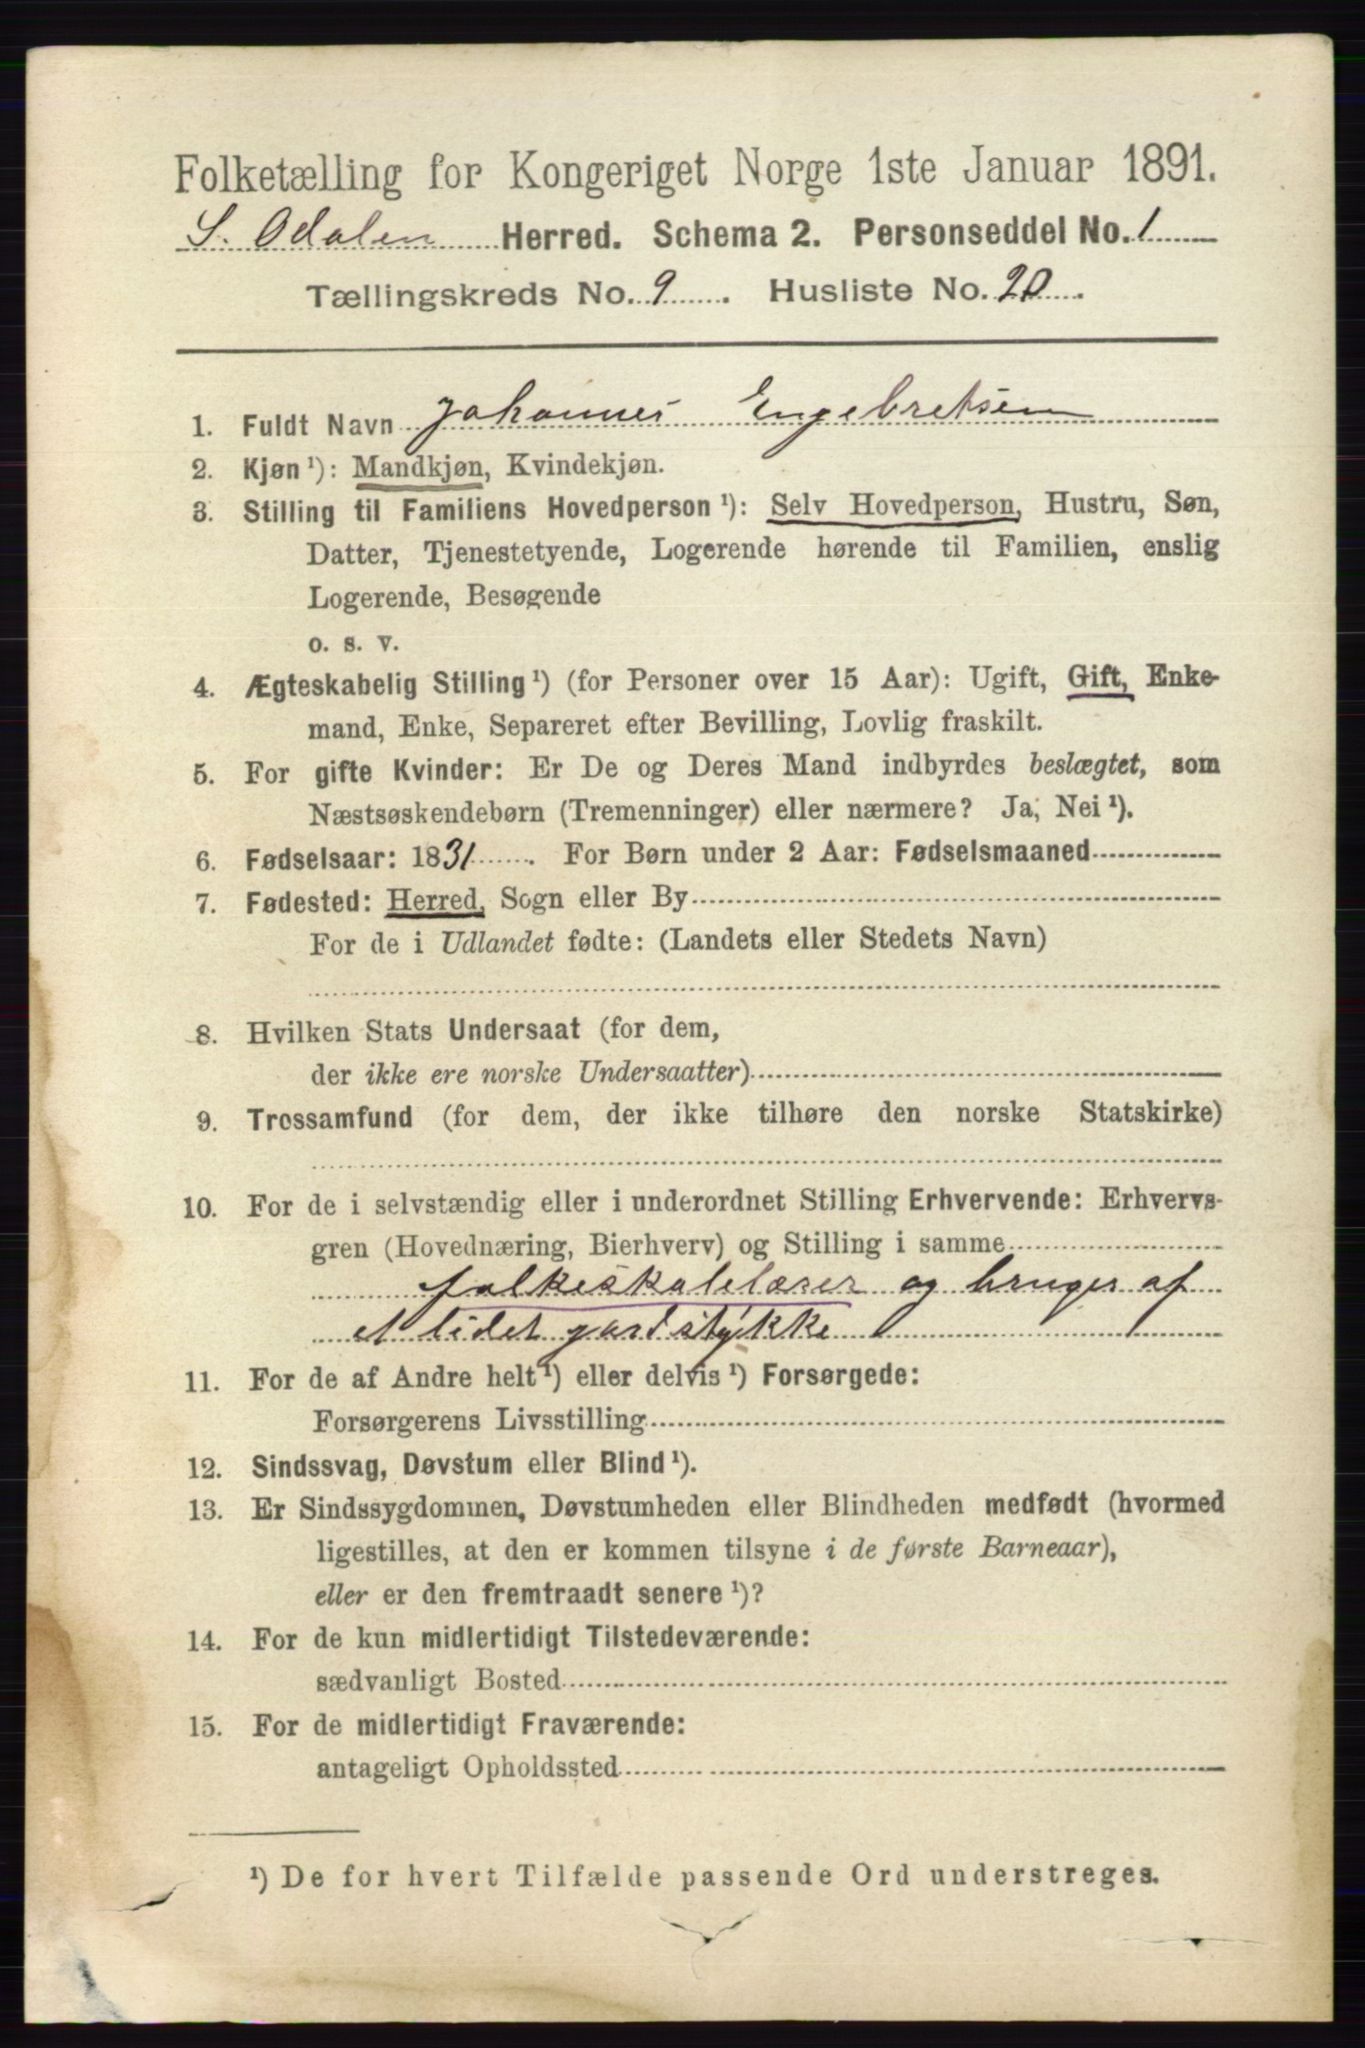 Folketælling for Kongeriget Norge 1ste Januar 1891.
S. Odalen Herred. Schema 2. Personseddel No. 1
Tællingskreds No. 9. Husliste No. 20.
1. Fuldt Navn Johannes Engebretsen
2. Kjøn ¹): Mandkjøn, Kvindekjøn.
3. Stilling til Familiens Hovedperson ¹): Selv Hovedperson, Hustru, Søn,
Datter, Tjenestetyende, Logerende hørende til Familien, enslig
Logerende, Besøgende
o. s. v.
4. Ægteskabelig Stilling ¹) (for Personer over 15 Aar): Ugift, Gift, Enke-
mand, Enke, Separeret efter Bevilling, Lovlig fraskilt.
5. For gifte Kvinder: Er De og Deres Mand indbyrdes beslægtet, som
Næstsøskendebørn (Tremenninger) eller nærmere? Ja, Nei ¹).
6. Fødselsaar: 1831. For Børn under 2 Aar: Fødselsmaaned
7. Fødested: Herred, Sogn eller By
For de i Udlandet fødte: (Landets eller Stedets Navn)
8. Hvilken Stats Undersaat (for dem,
der ikke ere norske Undersaatter)
9. Trossamfund (for dem, der ikke tilhøre den norske Statskirke)
10. For de i selvstændig eller i underordnet Stilling Erhvervende: Erhvervs-
gren (Hovednæring, Bierhverv) og Stilling i samme
folkeskolelærer og bruger af
et lidet gardstykke
11. For de af Andre helt ¹) eller delvis ¹) Forsørgede:
Forsørgerens Livsstilling
12. Sindssvag, Døvstum eller Blind ¹).
13. Er Sindssygdommen, Døvstumheden eller Blindheden medfødt (hvormed
ligestilles, at den er kommen tilsyne i de første Barneaar),
eller er den fremtraadt senere ¹)?
14. For de kun midlertidigt Tilstedeværende:
sædvanligt Bosted
15. For de midlertidigt Fraværende:
antageligt Opholdssted
¹) De for hvert Tilfælde passende Ord understreges.